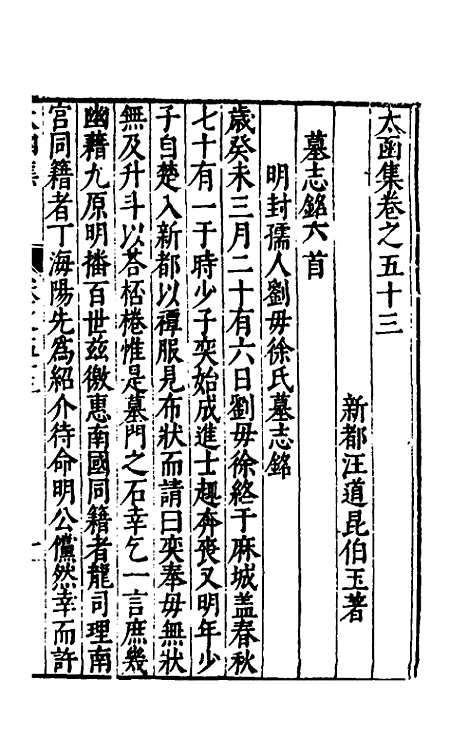 太函集卷之五十三
新都汪道昆伯玉著
墓志銘六首
明封孺人劉母徐氏墓志銘
歲癸未三月二十有六日劉母徐終于麻城盖春秋
七十有一于時少子奕始成進士趨奔喪又明年少
子自楚入新都以禫服見布狀而請曰奕奉母無狀
無及升斗以荅桮棬惟是墓門之石幸乞一言庶幾
幽藉九原明播百世兹徼惠南國同籍者龍司理南
宫同籍者丁海陽先爲紹介待命明公儻然幸而許